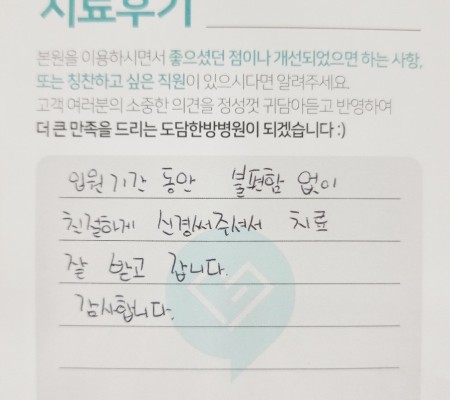 치료후기
본원을 이용하시면서 좋으셨던 점이나 개선되었으면 하는 사항,
또는 칭찬하고 싶은 직원이 있으시다면 알려주세요.
고객 여러분의 소중한 의견을 정성껏 귀담아듣고 반영하여
더 큰 만족을 드리는 도담한방병원이 되겠습니다 :)
입원기간 동안 불편함 없이
친절하게 신경써주셔서 치료
잘 받고 갑니다.
감사합니다.